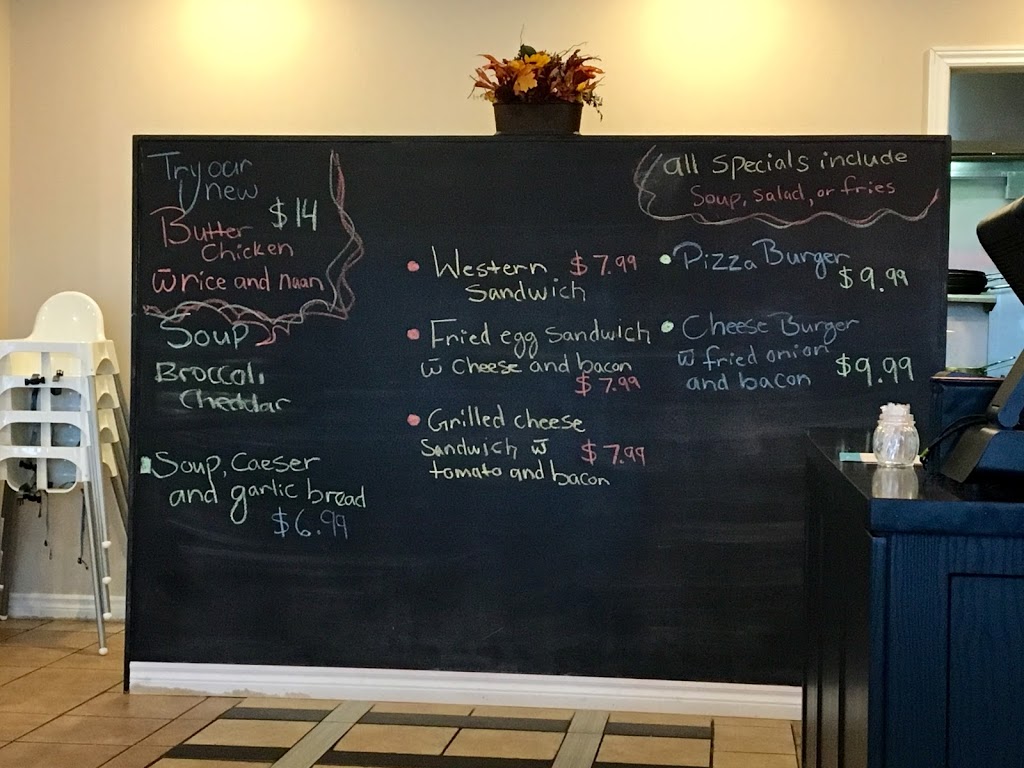 Try our
new
Butter $14
Chicken
w̄ rice and naan
Soup
Broccoli
Cheddar
Soup, Caeser
and garlic bread
$6.99
• Western $7.99
Sandwich
• Fried egg Sandwich
w̄ Cheese and bacon
$7.99
• Grilled cheese
Sandwich w̄ $7.99
tomato and bacon
all Specials include
Soup, Salad, or fries
• Pizza Burger
$9.99
• Cheese Burger
w̄ fried onion
and bacon $9.99